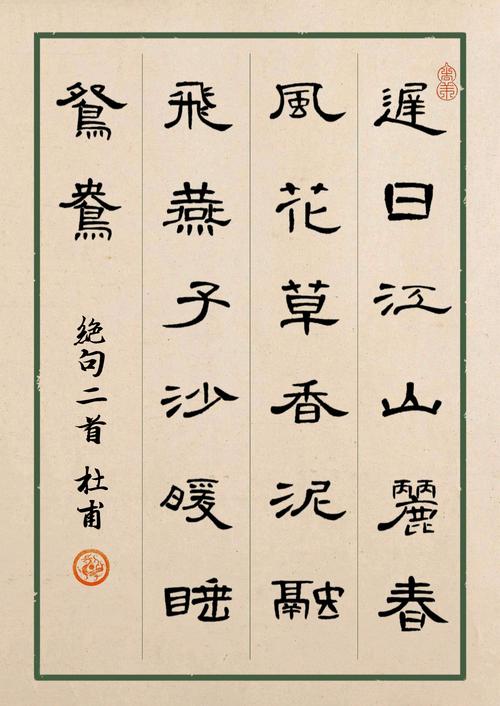 遲日江山麗春
風花草香泥融
飛燕子沙暖睡
鴛鴦
绝句二首 杜甫